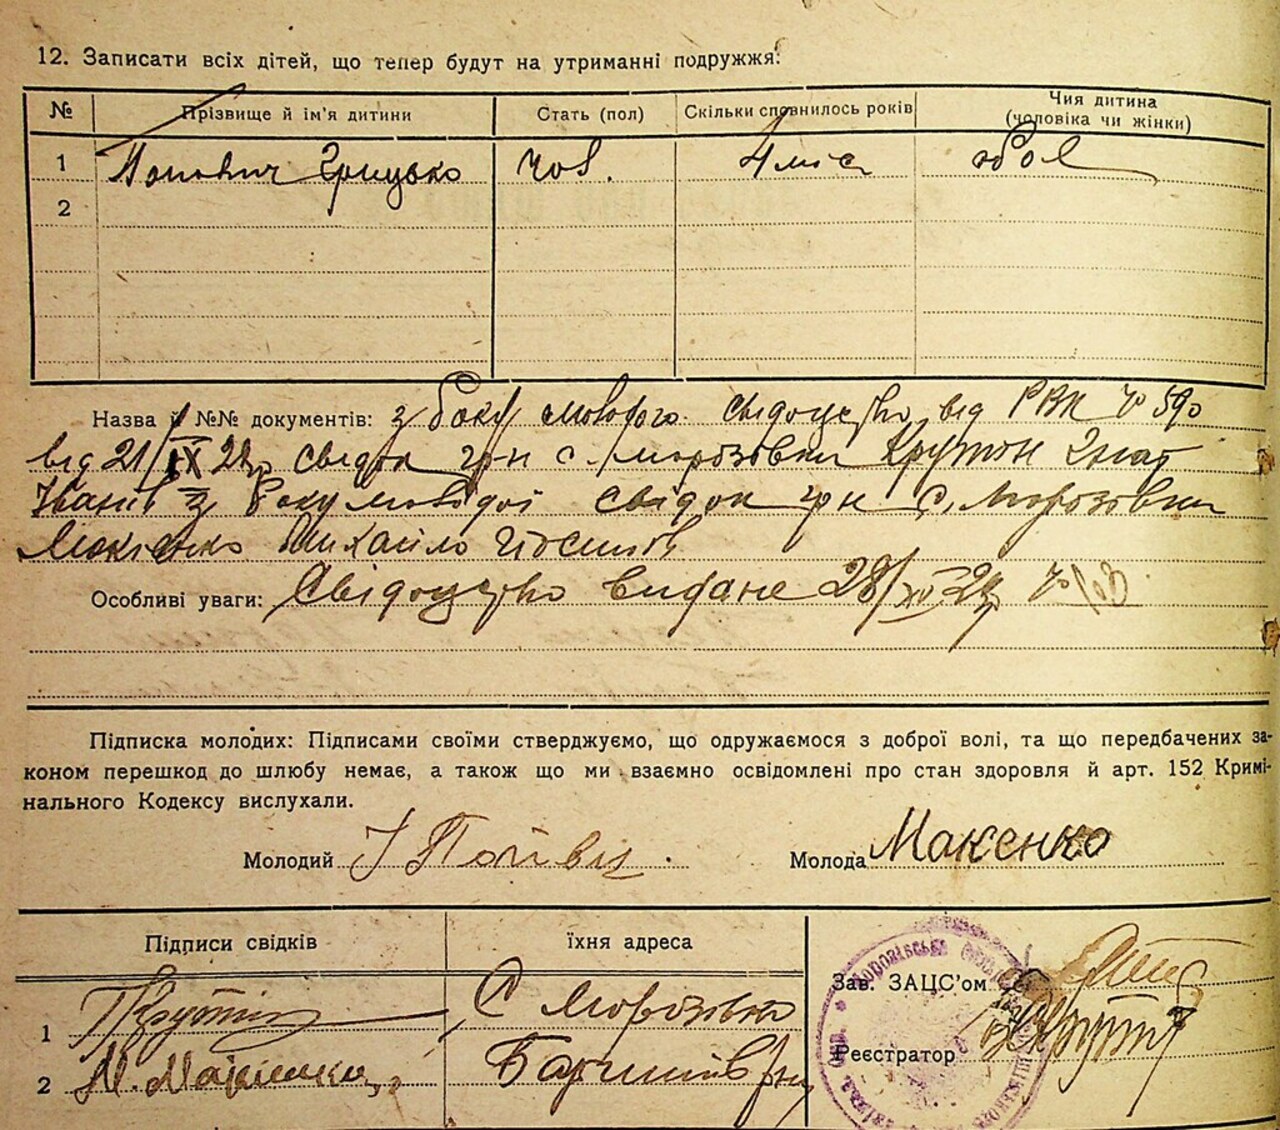 12. Записати всіх дітей, що тепер будут на утриманні подружжя:
№ Прізвище й ім'я дитини Стать (пол) Скільки сповнилось років Чия дитина (чоловіка чи жінки)
1 Попович Грицько чов. 4 міс обоє
2
Назва й №№ документів: з боку молодого свідоцтво від РВК № 590
від 21/IX 29 р свідок грн с. Морозовки Крутій Гнат
Іванів з боку молодої свідок грн с. Морозовки
Михайло
Особливі уваги: Свідоцтво видане 28/XII 29 р № 163
Підписка молодих: Підписами своїми стверджуємо, що одружаємося з доброї волі, та що передбачених за-
коном перешкод до шлюбу немає, а також що ми взаємно освідомлені про стан здоровля й арт. 152 Кримі-
нального Кодексу вислухали.
Молодий Молода Максенко
Підписи свідків їхня адреса
Зав. ЗАЦС'ом
1 Крутій С Морозівка
Реєстратор
2 М. Баришів р-ну